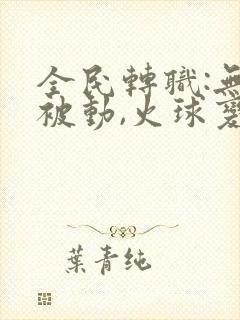 全民轉職:無
被動,火球變
葉青純